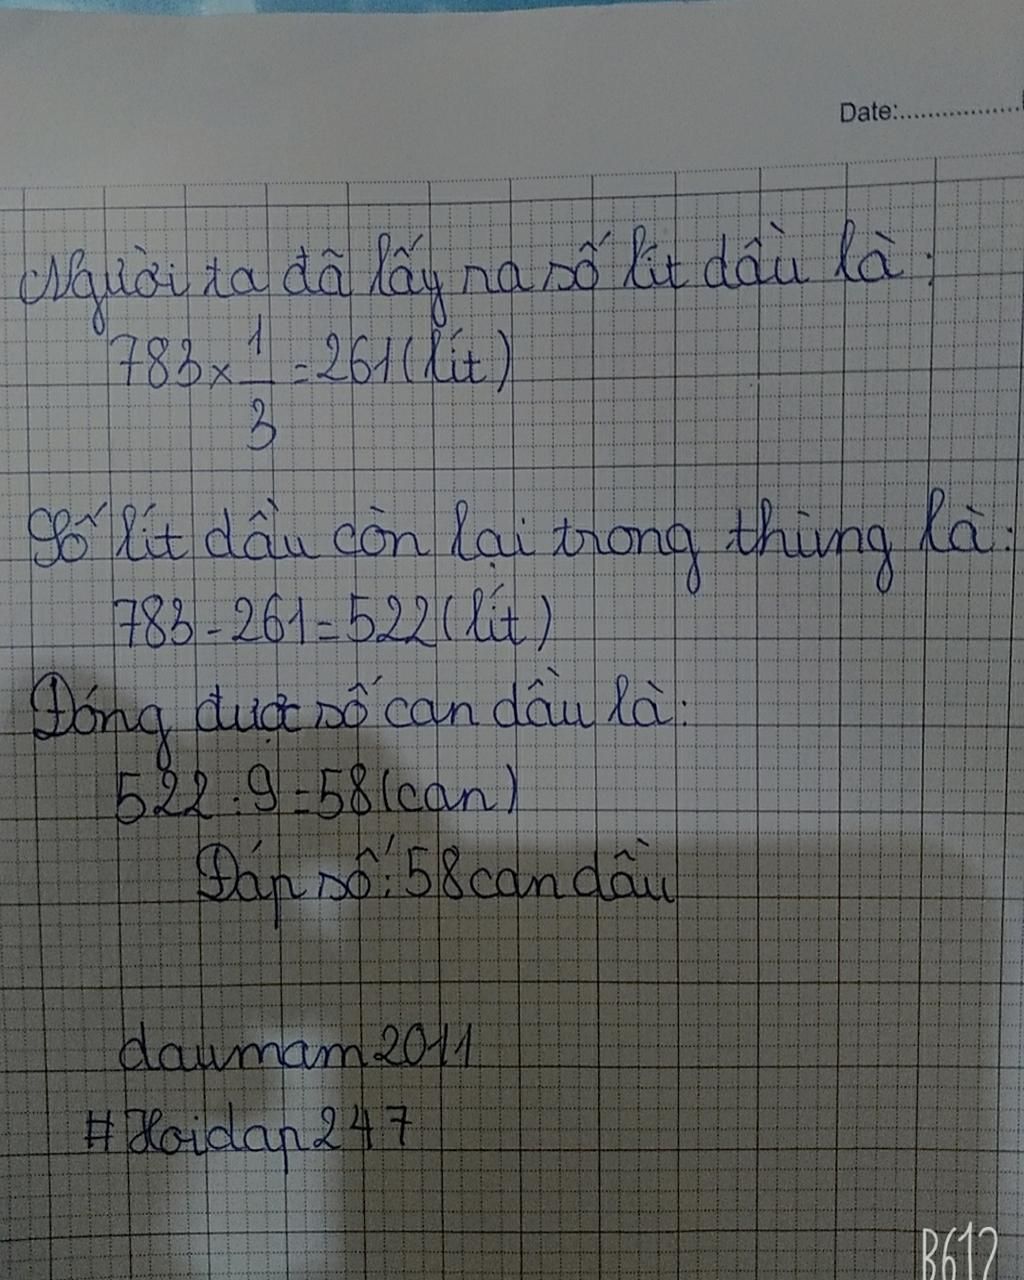 Date:
Người ta đã lấy ra số lít dầu là:
783 × 1/3 = 261 (lít)
Số lít dầu còn lại trong thùng là:
783 - 261 = 522 (lít)
Đóng được số can dầu là:
522 : 9 = 58 (can)
Đáp số: 58 can dầu
daumam2011
#Hoidap247
B612